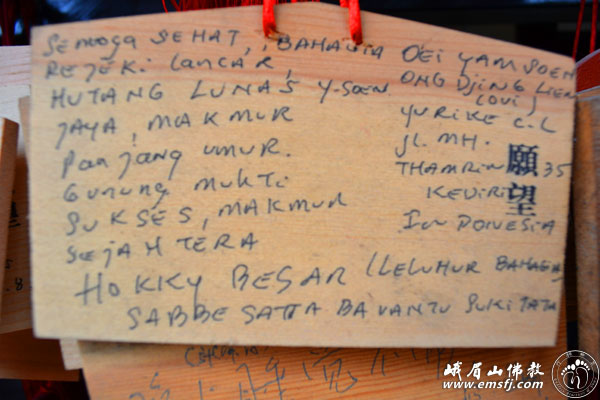 Semoga SEHAT, BAHAGIA
REJEKI LANCAR,
HUTANG LUNAS Y-SOEN
JAYA, MAKMUR
Panjang umur.
Gunung mukti
SUKSES, MAKMUR
SEJAHTERA
OEI YAM SOEN
ONG DJING LIEN
YURIKE C.L
JL. MH.
THAMRIN 35
KEDIRI
INDONESIA
願望
HOKKY BESAR (LELUHUR BAHAGIA
SABBE SATTA BAVANTU SUKITATA
峨眉山佛教
www.emsfj.com